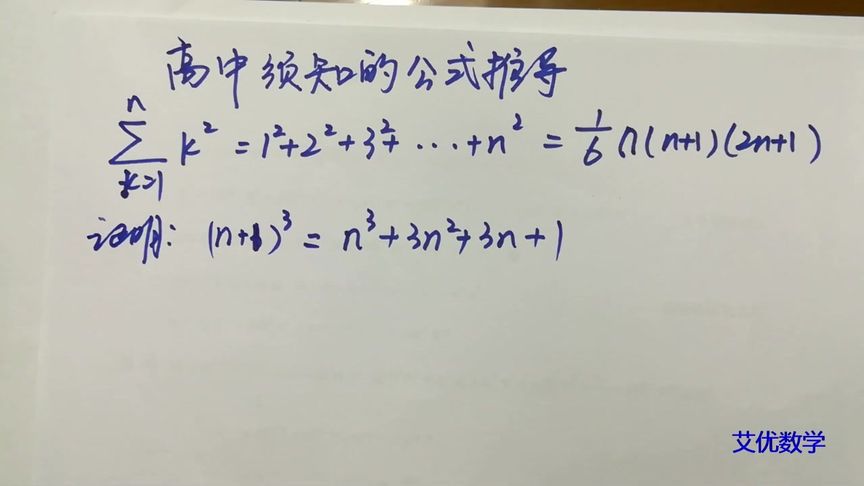 高中须知的公式推导
n
∑ k² = 1²+2²+3²+ ⋯ +n² = 1/6 n(n+1)(2n+1)
k=1
证明: (n+1)³ = n³+3n²+3n+1
艾优数学